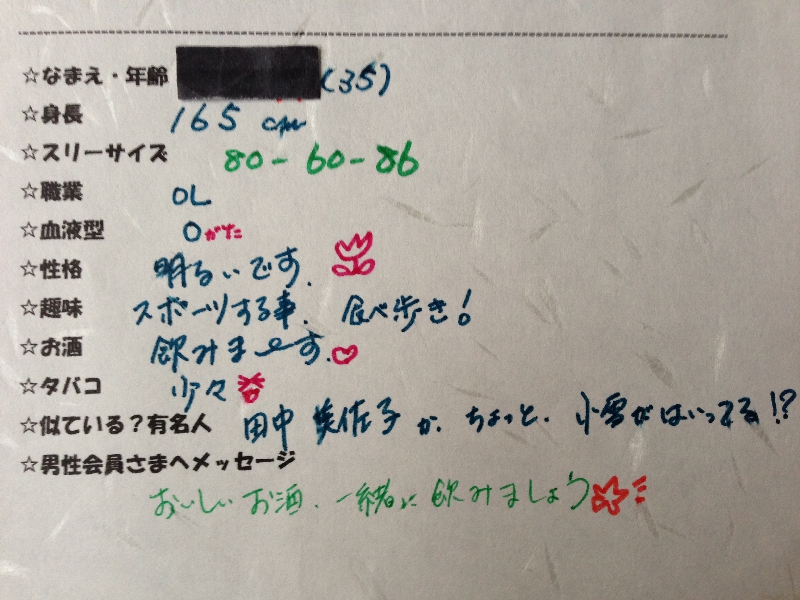 ☆なまえ・年齢 (35)
☆身長 165 cm
☆スリーサイズ 80-60-86
☆職業 OL
☆血液型 Oがた
☆性格 明るいです.
☆趣味 スポーツする事. 食べ歩き!
☆お酒 飲みまーす.
☆タバコ 少々
☆似ている?有名人 田中美佐子か、ちょっと、小雪がはいってる!?
☆男性会員さまへメッセージ
おいしいお酒、一緒に飲みましょう